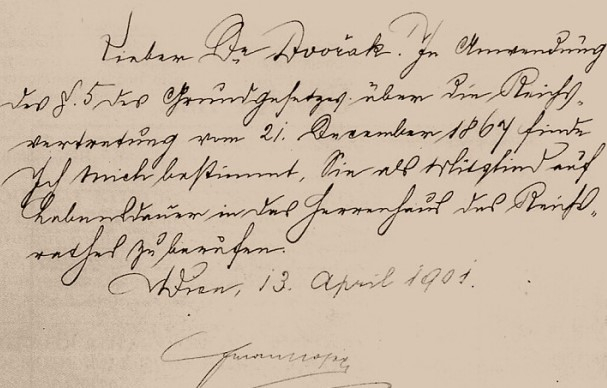 Lieber Dr. Dvořák. In Anwendung
des §. 5 des Grundgesetzes über die Reichs-
vertretung vom 21. December 1867 finde
Ich Mich bestimmt, Sie als Mitglied auf
Lebensdauer in das Herrenhaus des Reichs-
rathes zu berufen.
Wien, 13. April 1901.